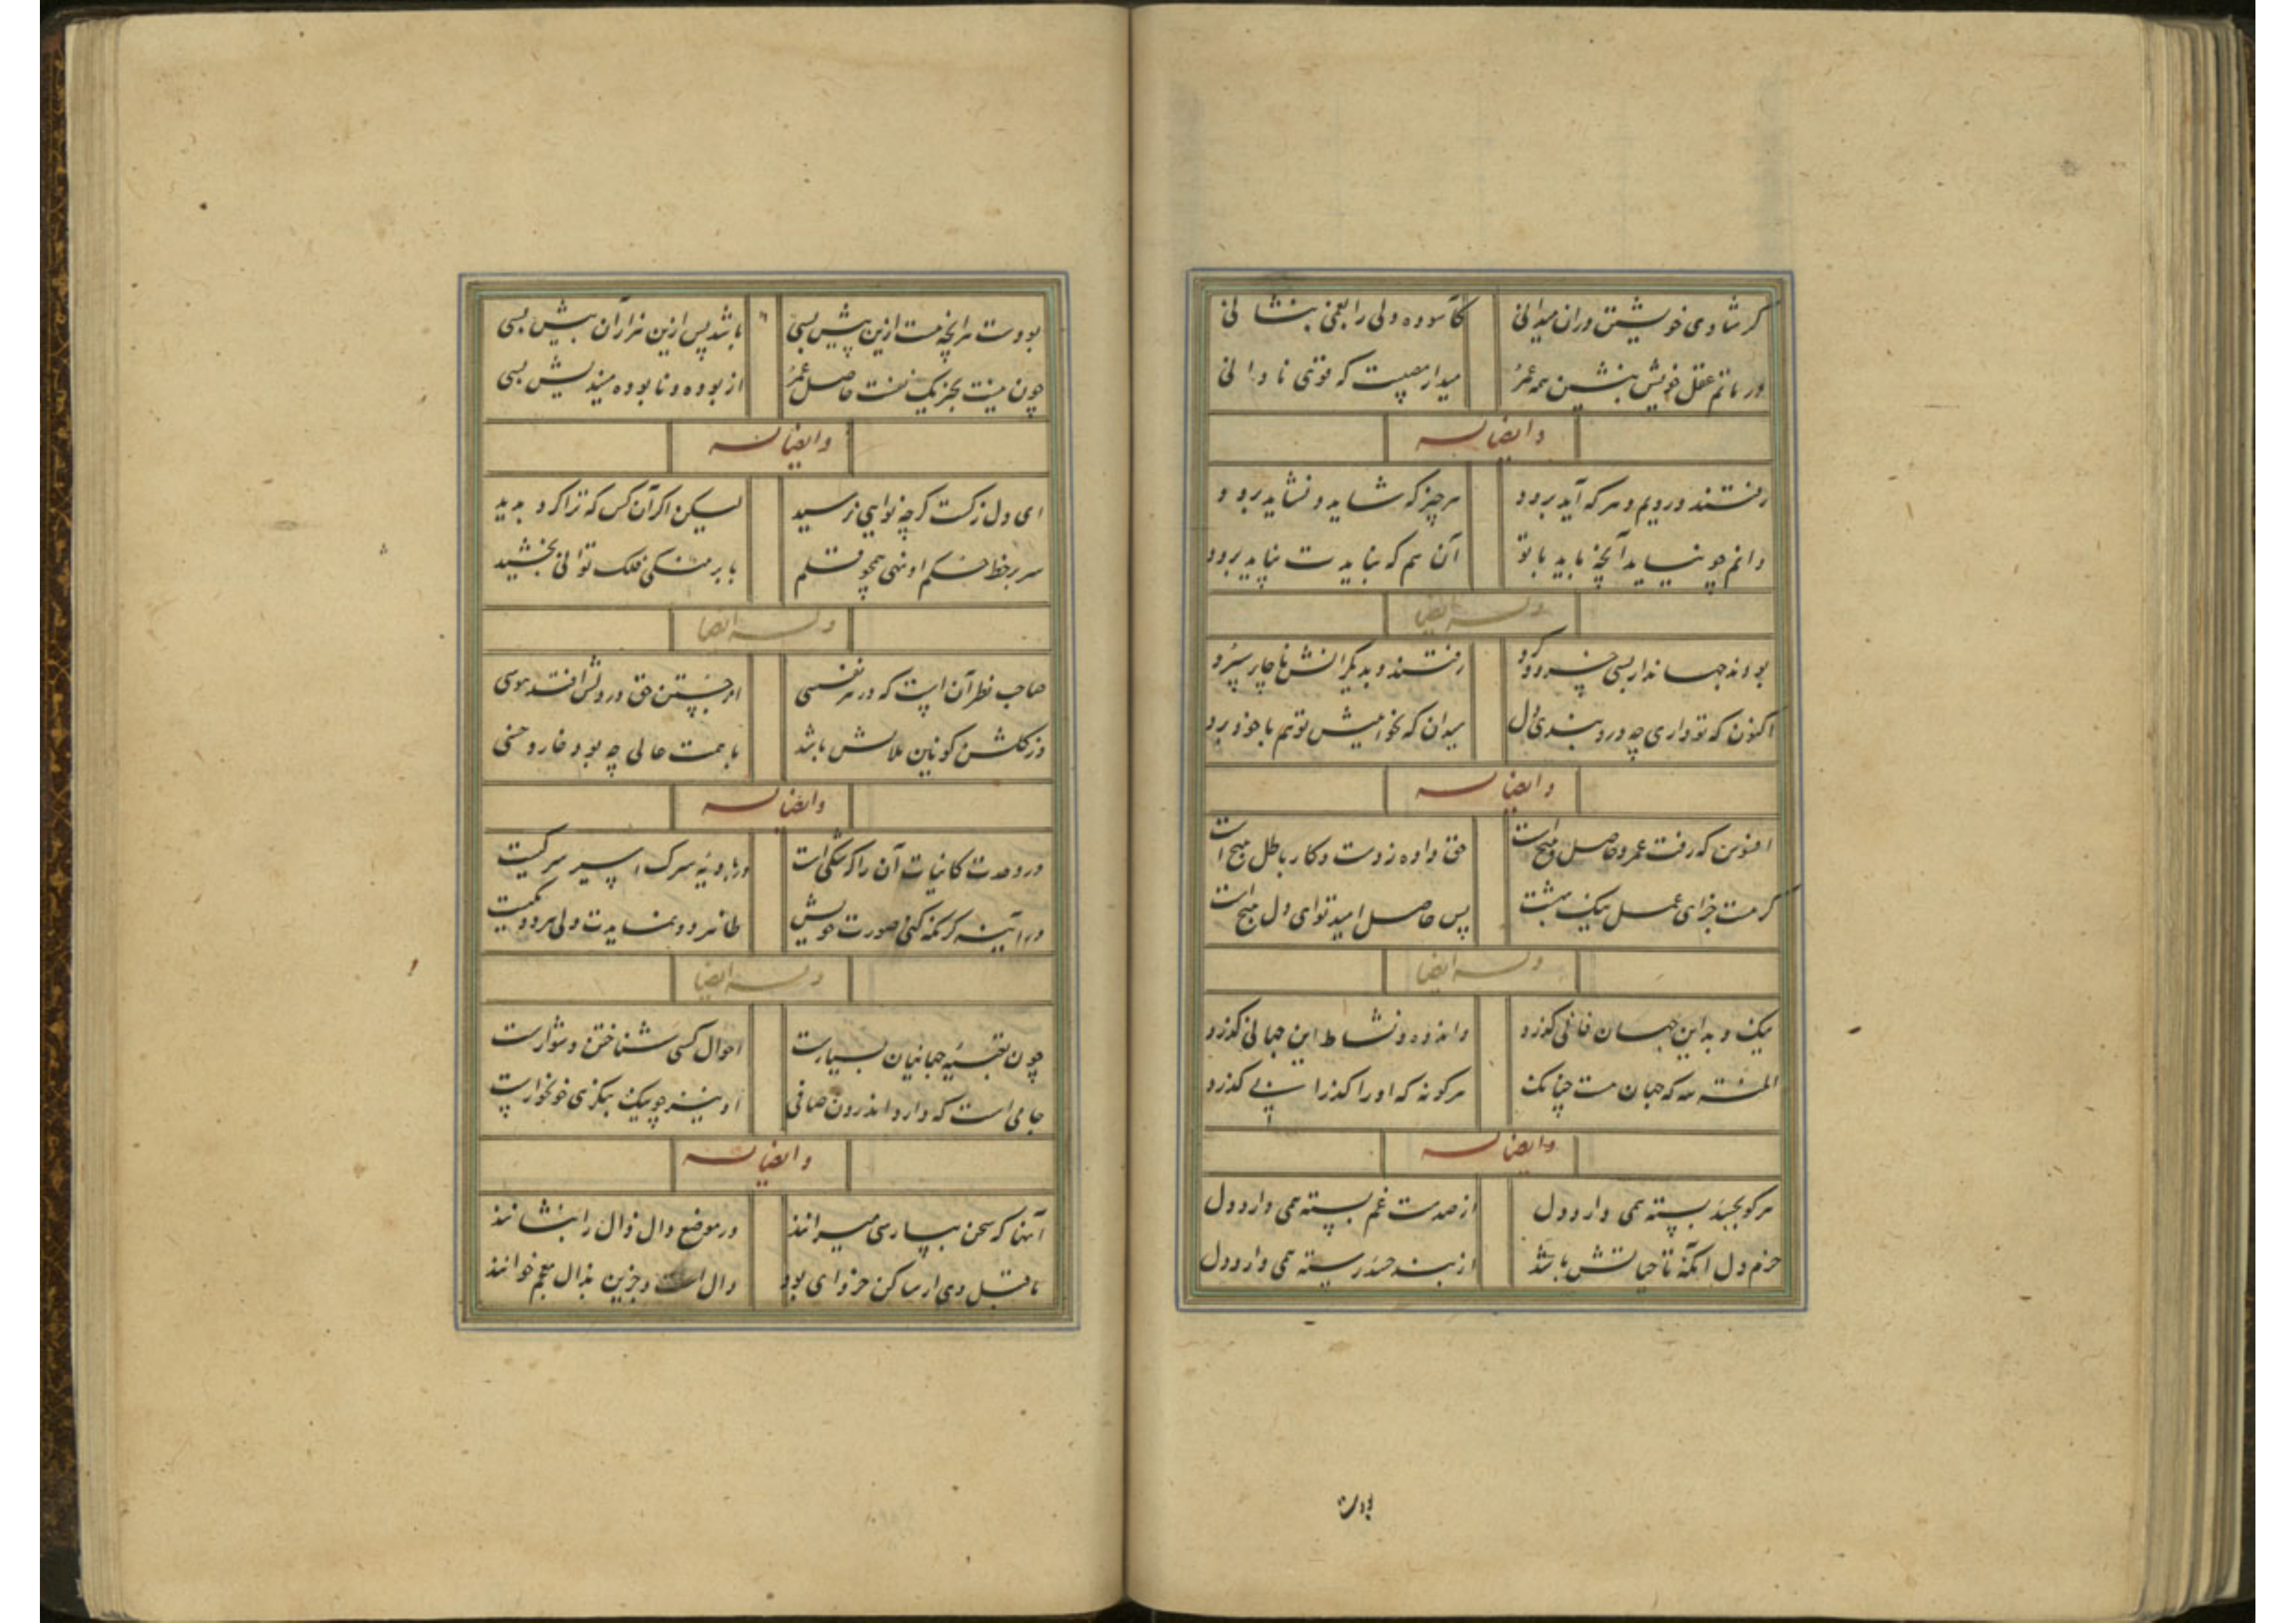 گر شادی خویشتن در آن میدانی کآسوده دلی را بغمی بنشانی
در ماتم عقل خویش بنشین همه عمر میدار مصیبت که قوئی نادانی
وایضا له
رفتند و رویم و هر که آید برود هر چیز که شاید و نشاید برود
دانم چو نیاید آنچه باید با تو آن هم که نبایدت نپاید برود
وله ایضا
بودند جهاندار بسی خرد و رفتند و بدیگرانش ناچار سپرد
اکنون که تو داری چه در و بندی دل میدان که نخواهیش تو هم با خود برد
وایضا له
افسوس که رفت عمر و حاصل هیچ است حق داده ز دست و کار باطل هیچ است
گر هست جزای عمل نیک بهشت پس حاصل امید تو ای دل هیچ است
وله ایضا
نیک و بد این جهان فانی گذرد و اندوه و نشاط این جهانی گذرد
المنة لله که جهان هست چنانک هر گونه که او را گذرانی گذرد
وایضا له
هر کو بحسد بسته همی دارد دل از صدمت غم بسته همی دارد دل
خرم دل آنکه تا حیاتش باشد از بند حسد رسته همی دارد دل
بودت
بودت هر آنچه هست ازین پیش بسی باشد پس ازین هزار از آن بیش بسی
چون نیست بجز یک نفست حاصل عمر از بوده و نابوده میندیش بسی
وایضا له
ای دل ز کست گرچه نوایی نرسید لیکن اگر آن کس که ترا کرد پدید
سر بر خط حکم او نهی همچو قلم با بر منکی فلک توانی بخشید
وله ایضا
صاحب نظر آن است که در هر نفسی از جستن حق در دلش افتد هوسی
وز گلشن کونین ملالش باشد با همت عالی چه بود خار و خسی
وایضا له
در وحدت کاینات آن را که شکی است اسیر
در آینه گر نگه کنی صورت خویش ظاهر دو نمایدت ولی هر دو یکیست
وله ایضا
چون تعبیه جهانیان بسیارست احوال کسی شناختن دشوارست
جامی است که دارد اندرون صافی او نیز چو نیک بنگری خونخوارست
وایضا له
آنها که سخن بپارسی میرانند در موضع دال ذال را بنشانند
ماقبل وی ار ساکن جز وای بود دال است و جزین بذال معجم خوانند